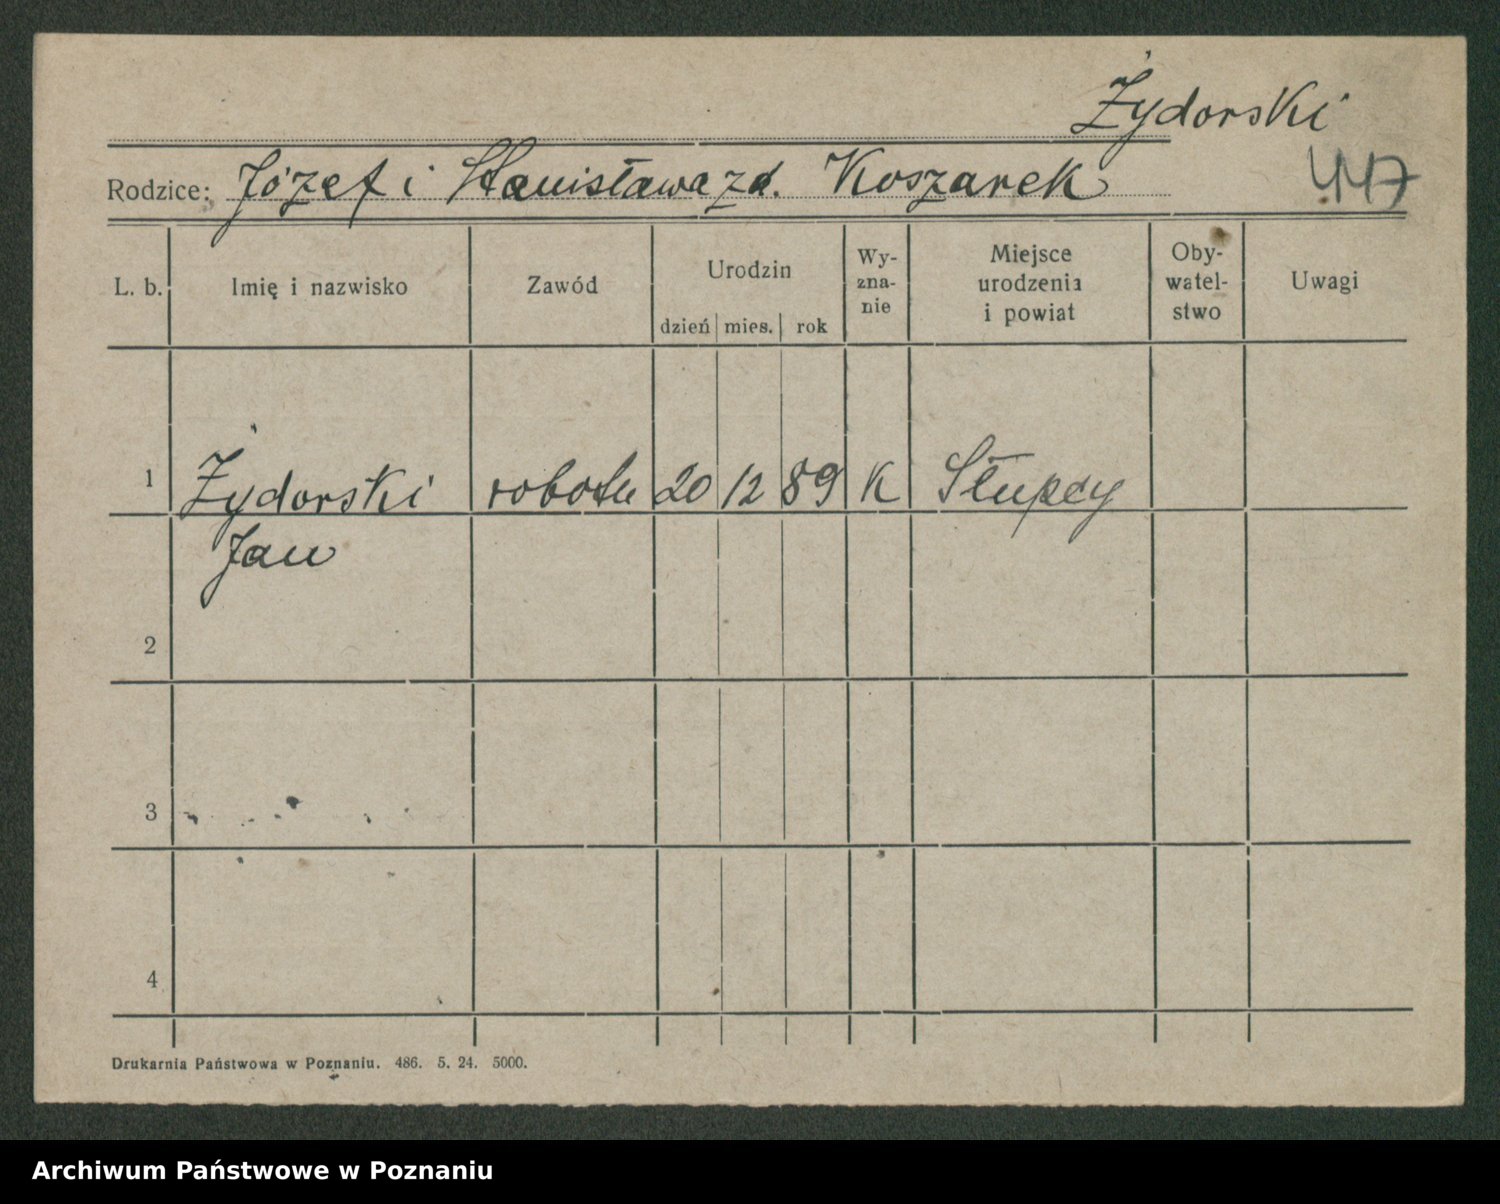 Żydorski
447
Rodzice: Józef i Stanisława zd. Koszarek
L. b. Imię i nazwisko Zawód Urodzin dzień mies. rok Wy- zna- nie Miejsce urodzenia i powiat Oby- watel- stwo Uwagi
1 Żydorski robotn 20 12 89 K Słupcy
Jan
2
3
4
Drukarnia Państwowa w Poznaniu. 486. 5. 24. 5000.
Archiwum Państwowe w Poznaniu